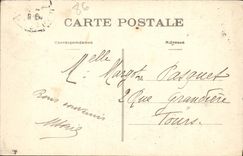 86
CARTE POSTALE
Correspondance
Adresse
Melle
M. Margot Pasquet
2 Rue Grandière
Tours.
Bons souvenirs